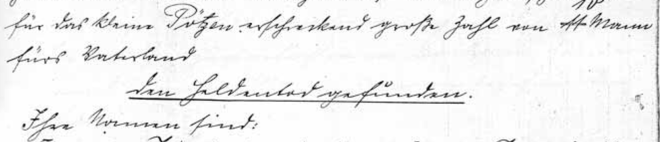 für das kleine Pötzen erschreckend große Zahl von Mann
fürs Vaterland
den Heldentod gefunden.
Ihre Namen sind: